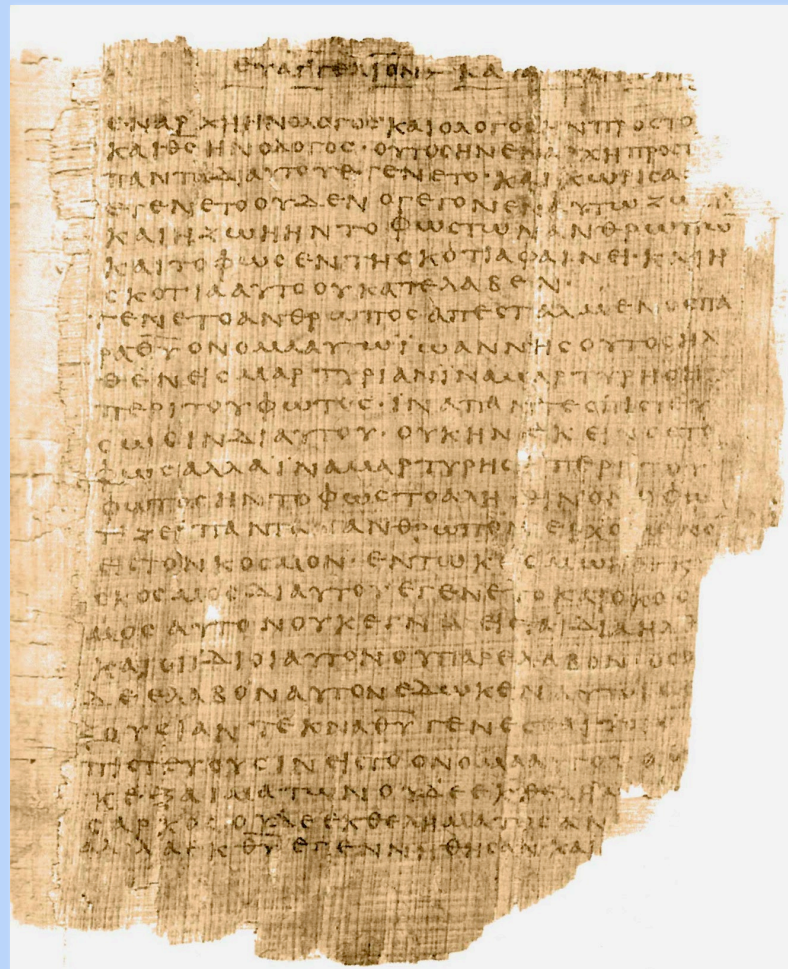 ΕΥΑΓΓΕΛΙΟΝ ΚΑΤΑ
ΕΝΑΡΧΗΗΝΟΛΟΓΟΣΚΑΙΟΛΟΓΟΣΗΝΠΡΟΣΤΟ
ΚΑΙΘΣΗΝΟΛΟΓΟΣ·ΟΥΤΟΣΗΝΕΝΑΡΧΗΠΡΟΣΤ
ΠΑΝΤΑΔΙΑΥΤΟΥΕΓΕΝΕΤΟ·ΚΑΙΧΩΡΙΣΑ
ΕΓΕΝΕΤΟΟΥΔΕΝΟΓΕΓΟΝΕΝΑΥΤΩΖΩ
ΚΑΙΗΖΩΗΗΝΤΟΦΩΣΤΩΝΑΝΘΡΩΠΩ
ΚΑΙΤΟΦΩΣΕΝΤΗΣΚΟΤΙΑΦΑΙΝΕΙ·ΚΑΙΗ
ΣΚΟΤΙΑΑΥΤΟΟΥΚΑΤΕΛΑΒΕΝ·
ΓΕΝΕΤΟΑΝΘΡΩΠΟΣΑΠΕΣΤΑΛΜΕΝΟΣΠΑ
ΡΑΘΥΟΝΟΜΑΑΥΤΩΙΩΑΝΝΗΣΟΥΤΟΣΗΛ
ΘΕΝΕΙΣΜΑΡΤΥΡΙΑΝΙΝΑΜΑΡΤΥΡΗΣΗ
ΠΕΡΙΤΟΥΦΩΤΟΣ·ΙΝΑΠΑΝΤΕΣΠΙΣΤΕΥ
ΣΩΣΙΝΔΙΑΥΤΟΥ·ΟΥΚΗΝΕΚΕΙΝΟΣΤΟ
ΦΩΣΑΛΛΑΙΝΑΜΑΡΤΥΡΗΣΗΠΕΡΙΤΟΥ
ΦΩΤΟΣΗΝΤΟΦΩΣΤΟΑΛΗΘΙΝΟΝΟΦΩ
ΤΙΖΕΙΠΑΝΤΑΑΝΘΡΩΠΟΝΕΡΧΟΜΕΝΟ
ΕΙΣΤΟΝΚΟΣΜΟΝ·ΕΝΤΩΚΟΣΜΩΗΝΚ
ΟΚΟΣΜΟΣΔΙΑΥΤΟΥΕΓΕΝΕΤΟΚΑΙΟΚΟΣ
ΜΟΣΑΥΤΟΝΟΥΚΕΓΝΩΕΙΣΤΑΙΔΙΑΗΛΘ
ΚΑΙΟΙΙΔΙΟΙΑΥΤΟΝΟΥΠΑΡΕΛΑΒΟΝ·ΟΣΟ
ΔΕΕΛΑΒΟΝΑΥΤΟΝΕΔΩΚΕΝΑΥΤΟΙΣΕ
ΞΟΥΣΙΑΝΤΕΚΝΑΘΥΓΕΝΕΣΘΑΙΤΟΙΣ
ΠΙΣΤΕΥΟΥΣΙΝΕΙΣΤΟΟΝΟΜΑΑΥΤΟΥ·ΟΥ
ΚΕΞΑΙΜΑΤΩΝΟΥΔΕΕΚΘΕΛΗΜΑ
ΣΑΡΚΟΣΟΥΔΕΕΚΘΕΛΗΜΑΤΟΣΑΝ
ΑΛΛΑΕΚΘΥΕΓΕΝΝΗΘΗΣΑΝΚΑΙ